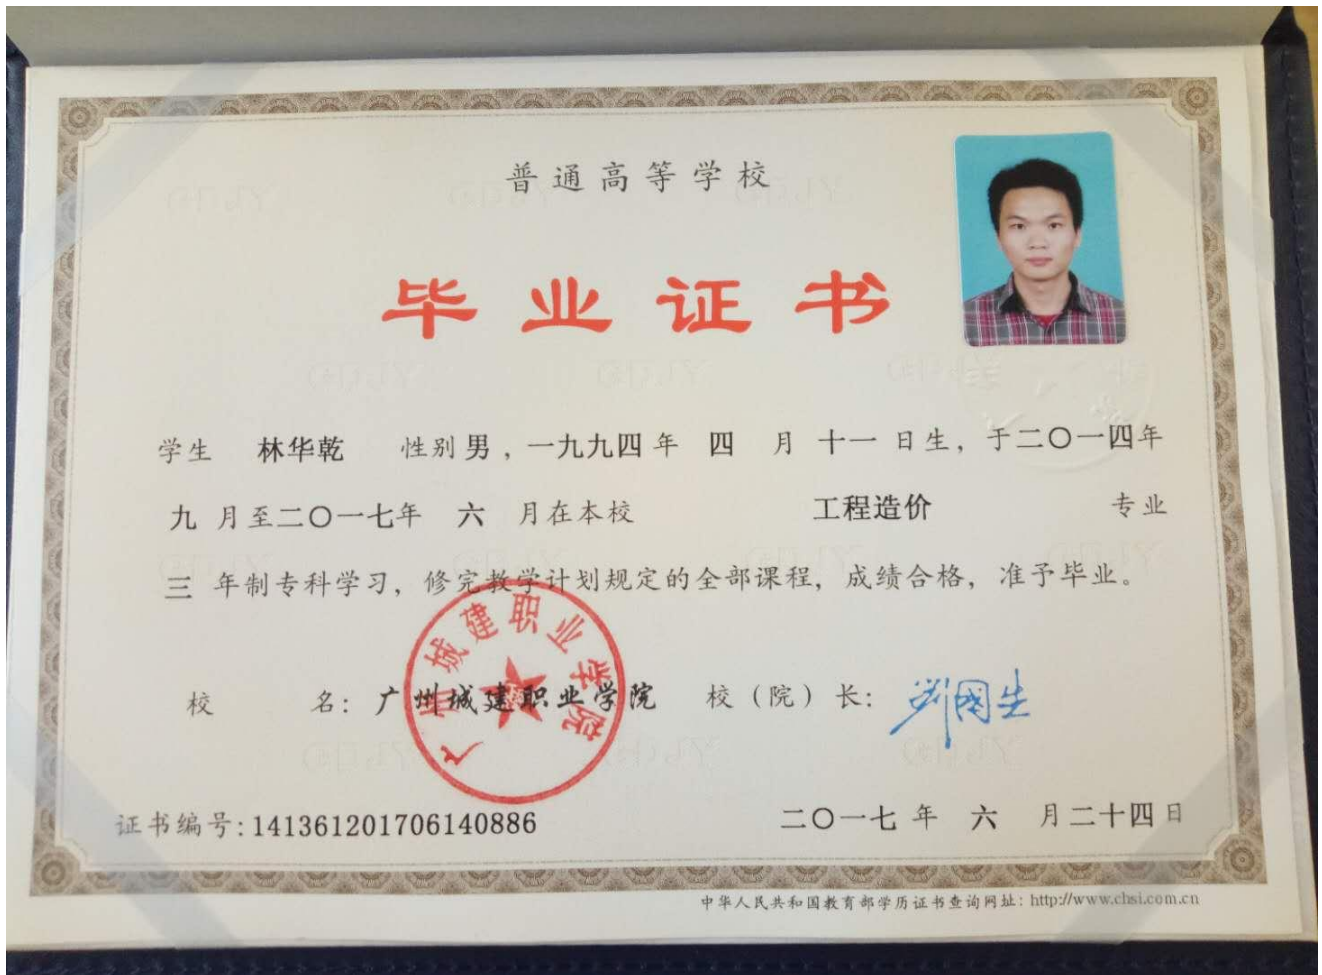 普通高等学校
毕业证书
学生 林华乾 性别 男 ，一九九四 年 四 月 十一 日生，于二〇一四年
九 月至二〇一七年 六 月在本校 工程造价 专业
三 年制专科学习，修完教学计划规定的全部课程，成绩合格，准予毕业。
广州城建职业学院
校 名：广州城建职业学院 校（院）长：
证书编号：141361201706140886 二〇一七 年 六 月二十四日
中华人民共和国教育部学历证书查询网址：http://www.chsi.com.cn